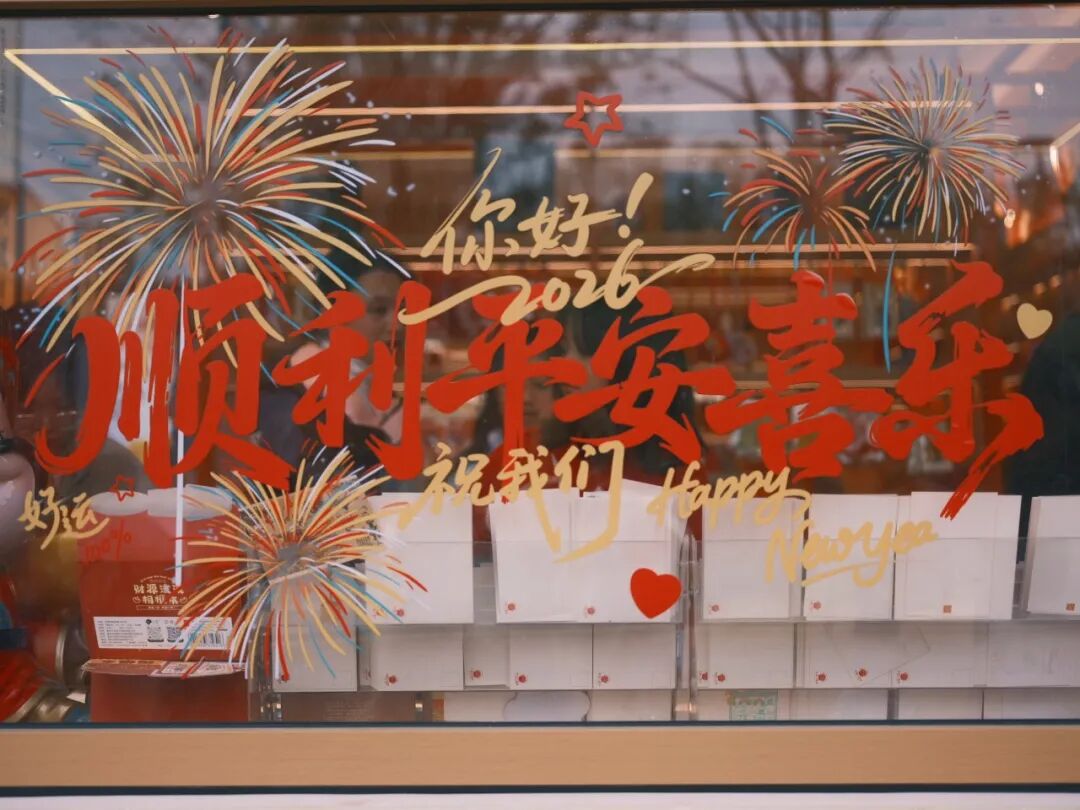 你好!
2026
顺利平安喜乐
祝我们
Happy
New year
好运
100%